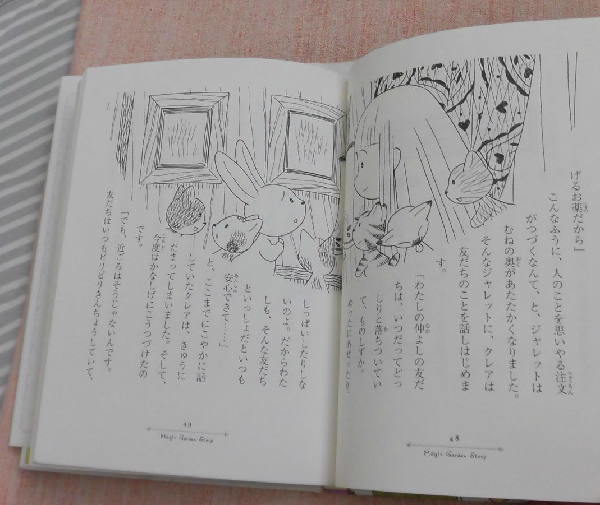 げるお薬だから」
こんなふうに、人のことを思いやる注文
がつづくなんて、と、ジャレットは
むねの奥があたたかくなりました。
そんなジャレットに、クレアは
友だちのことを話しはじめま
す。
「わたしの仲よしの友だ
ちは、いつだってどっ
しりと落ちついてい
て、ものしずか。
48
Magic Garden Story
しっぱいしたりしな
いのよ。だからわた
しも、そんな友だち
といっしょだといつも
安心できて……」
と、ここまでにこやかに話
していたクレアは、きゅうに
だまってしまいました。そして、
今度はかなしげにこうつづけたの
です。
「でも、近ごろはそうじゃないんです。
友だちはいつもどりょうしていて、
49
Magic Garden Story